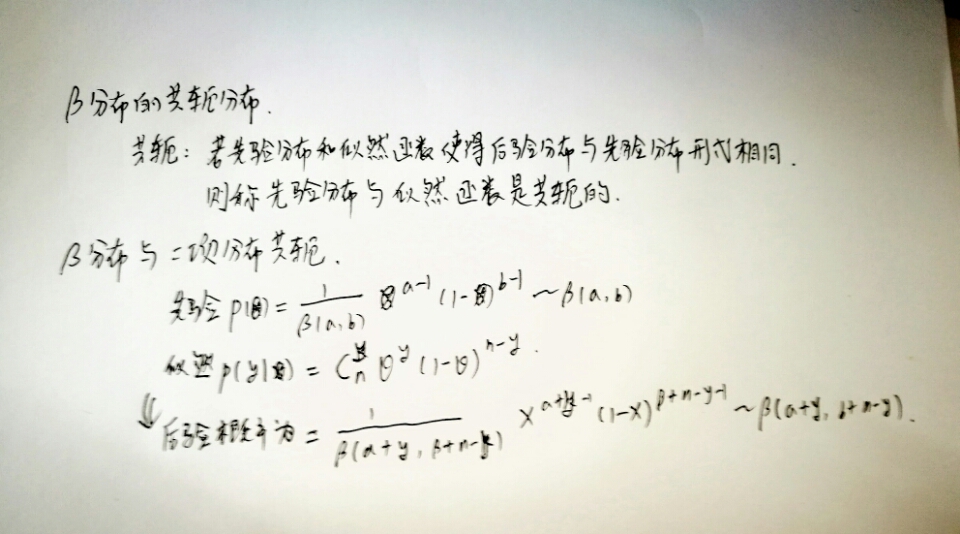 β分布的共轭分布.
共轭: 若先验分布和似然函数使得后验分布与先验分布形式相同.
则称先验分布与似然函数是共轭的.
β分布与二项分布共轭.
先验 p(θ) = 1/β(a,b) θ^{a-1} (1-θ)^{b-1} ~ β(a,b)
似然 p(y|θ) = C_n^y θ^y (1-θ)^{n-y}.
⇓ 后验概率为 = 1/β(α+y, β+n-y) x^{a+y-1} (1-x)^{β+n-y-1} ~ β(a+y, b+n-y).